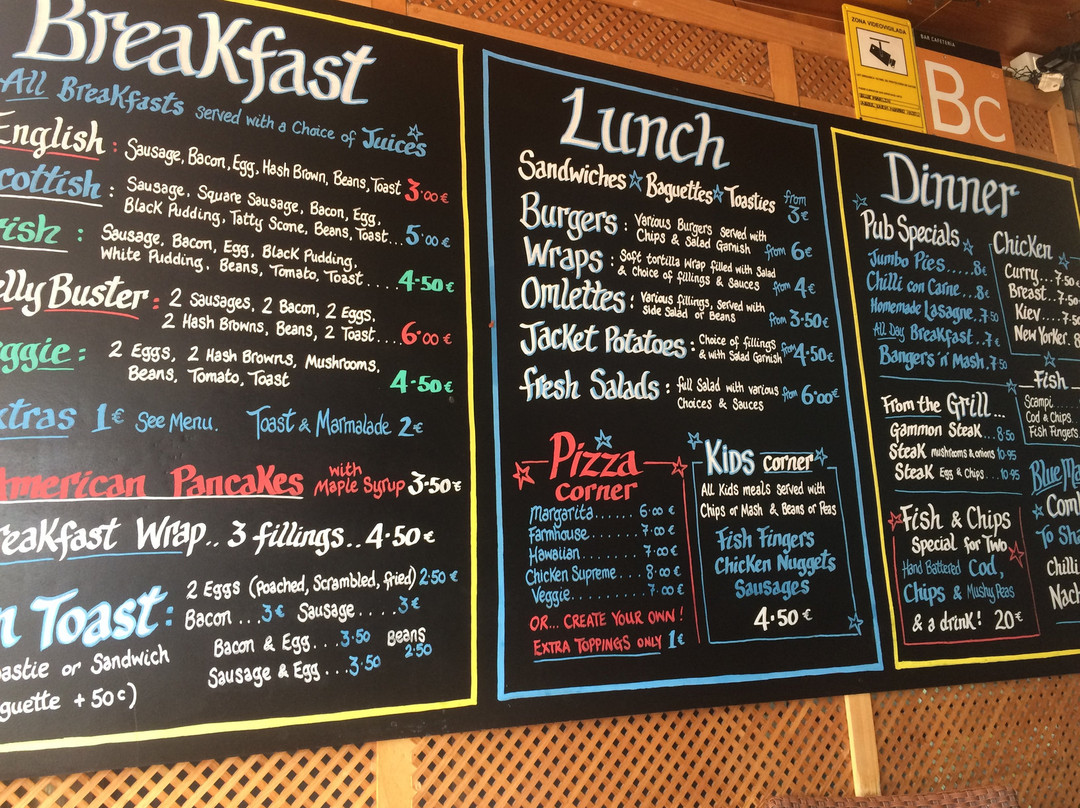 Breakfast
All Breakfasts served with a Choice of Juices
English : Sausage, Bacon, Egg, Hash Brown, Beans, Toast 3·00 €
cottish : Sausage, Square Sausage, Bacon, Egg,
Black Pudding, Tatty Scone, Beans, Toast... 5·00 €
rish : Sausage, Bacon, Egg, Black Pudding,
White Pudding, Beans, Tomato, Toast.... 4·50 €
elly Buster : 2 Sausages, 2 Bacon, 2 Eggs,
2 Hash Browns, Beans, 2 Toast.... 6·00 €
eggie : 2 Eggs, 2 Hash Browns, Mushrooms,
Beans, Tomato, Toast 4·50 €
xtras 1€ See Menu. Toast & Marmalade 2€
American Pancakes with Maple Syrup 3·50 €
reakfast Wrap.. 3 fillings.. 4·50 €
n Toast : 2 Eggs (Poached, Scrambled, fried) 2·50 €
Bacon ...3€ Sausage ....3€
Bacon & Egg...3·50 Beans 2·50
Sausage & Egg...3·50
oastie or Sandwich
guette +50c)
Lunch
Sandwiches Baguettes Toasties from 3€
Burgers : Various Burgers served with
Chips & Salad Garnish from 6€
Wraps : Soft tortilla wrap filled with Salad
& Choice of fillings & Sauces from 4€
Omlettes : Various fillings, served with
side Salad or Beans from 3·50€
Jacket Potatoes : Choice of fillings
& with Salad Garnish from 4·50€
fresh Salads : full Salad with various
Choices & Sauces from 6·00€
Pizza
corner
Margarita...... 6·00 €
Farmhouse..... 7·00 €
Hawaiian...... 7·00 €
Chicken Supreme.... 8·00 €
Veggie........ 7·00 €
OR... CREATE YOUR OWN!
EXTRA TOPPINGS ONLY 1€
Kids corner
All Kids meals served with
Chips or Mash & Beans or Peas
Fish Fingers
Chicken Nuggets
Sausages
4·50 €
ZONA VIDEOVIGILADA
BAR CAFETERIA
Bc
Dinner
Pub Specials
Jumbo Pies.....8€
Chilli con Carne...8€
Homemade Lasagne.7·50
All Day Breakfast..7€
Bangers 'n' Mash.7·50
From the Grill...
Gammon Steak...8·50
Steak mushrooms & onions 10·95
Steak Egg & Chips...10·95
Fish & Chips
Special for Two
Hand Battered Cod,
Chips & Mushy Peas
& a drink! 20€
Chicken
Curry...7·50€
Breast..7·50
Kiev....7·50
New Yorker. 8
Fish
Scampi
Cod & Chips
Fish Fingers
Blue Ma
Com
To Sha
Chilli
Nach